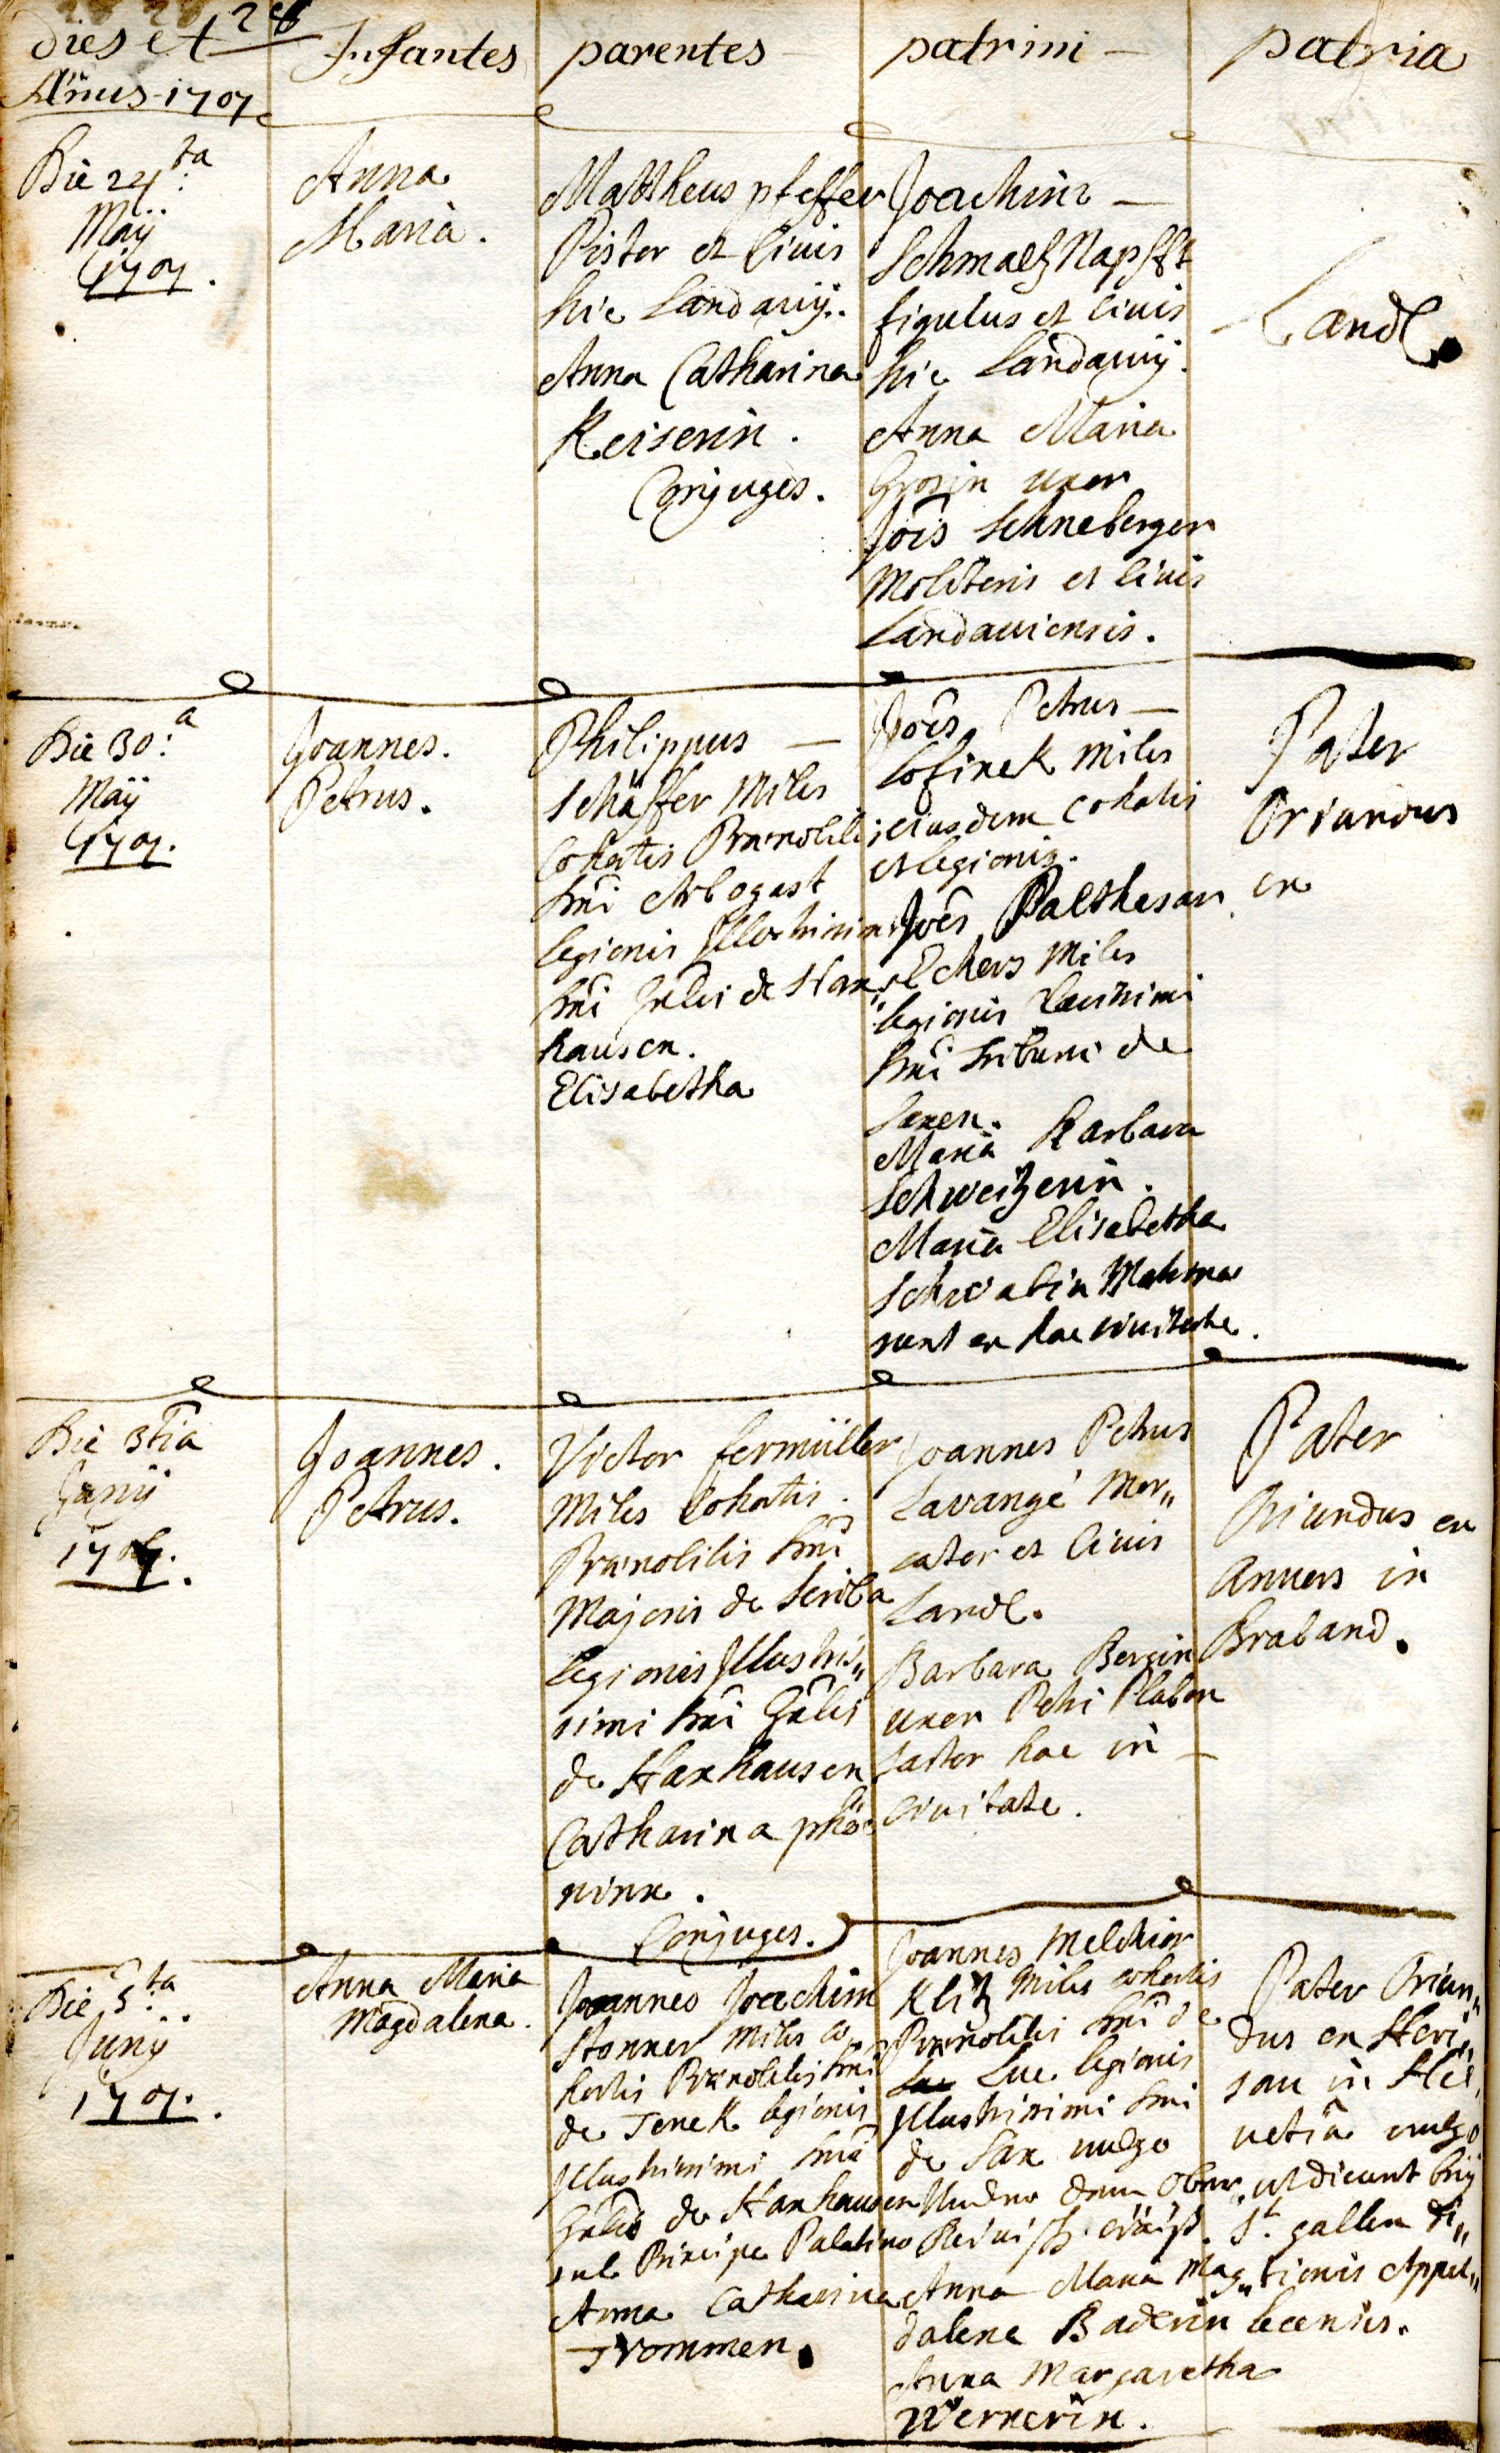 dies et Infantes parentes patrini — patria
Añus 1707
Die 24:ta
Maÿ
1707.
Anna
Maria.
Mattheus pfeffer
Pistor et Civis
hic Landavij.
Anna Catharina
Keiserin.
Conjuges.
Joachim —
Schmaltz Napfft
figulus et Civis
hic Landavij.
Anna Maria
Grosin uxor
Jois Schneberger
Molitoris et Civis
Landaviensis.
Land.
Die 30:a
Maÿ
1707.
Joannes.
Petrus.
Philippus —
Schäffer Miles
Cohortis Prænobilis
Dni Arbogast
legionis Illustrissimi
Dni Gnlis de Hax
hausen.
Elisabetha
Joês Petrus —
Cofinek Miles
eiusdem Cohortis
et legionis.
Joês Balthasar
Miles
legionis
Dni tribuni de
Saxen.
Maria Barbara
Schweitzerin.
Maria Elisabetha
Schwabin Matrinæ
sunt ex hac civitate.
Pater
Oriundus
ex
Die 3tia
Junÿ
1707.
Joannes.
Petrus.
Victor fermüller
Miles Cohortis
Prænobilis Dni
Majoris de Scriba
legionis Illustris„
simi Dni Gnlis
de Haxhausen
Catharina
Conjuges.
Joannes Petrus
Lavangé Mer„
cator et Civis
Land.
Barbara Bergin
uxor Petri Plabon
sartor hac in —
civitate.
Pater
Oriundus ex
Anvers in
Braband.
Die 5:ta
Junÿ
1707.
Anna Maria
Magdalena.
Joannes Joachim
Stonner Miles co„
hortis Prænobilis Dni
de Jenek legionis
Illustrissimi Dni
Gnlis de Haxhausen
sub Principe Palatino
Anna Catharina
Trommen.
Joannes Melchior
Klitz Miles cohortis
Prænobilis Dni de
Luc legionis
Illustrissimi Dni
de Sax vulgo
Under dem Ober„
Anna Maria Mag„
dalena Baderin
Anna Margaretha
Wernerin.
Pater Oriun„
dus ex Heri„
sau in Hel„
vetia vulgo
ut dicunt beÿ
St. gallen di„
tionis Appel„
lecensis.